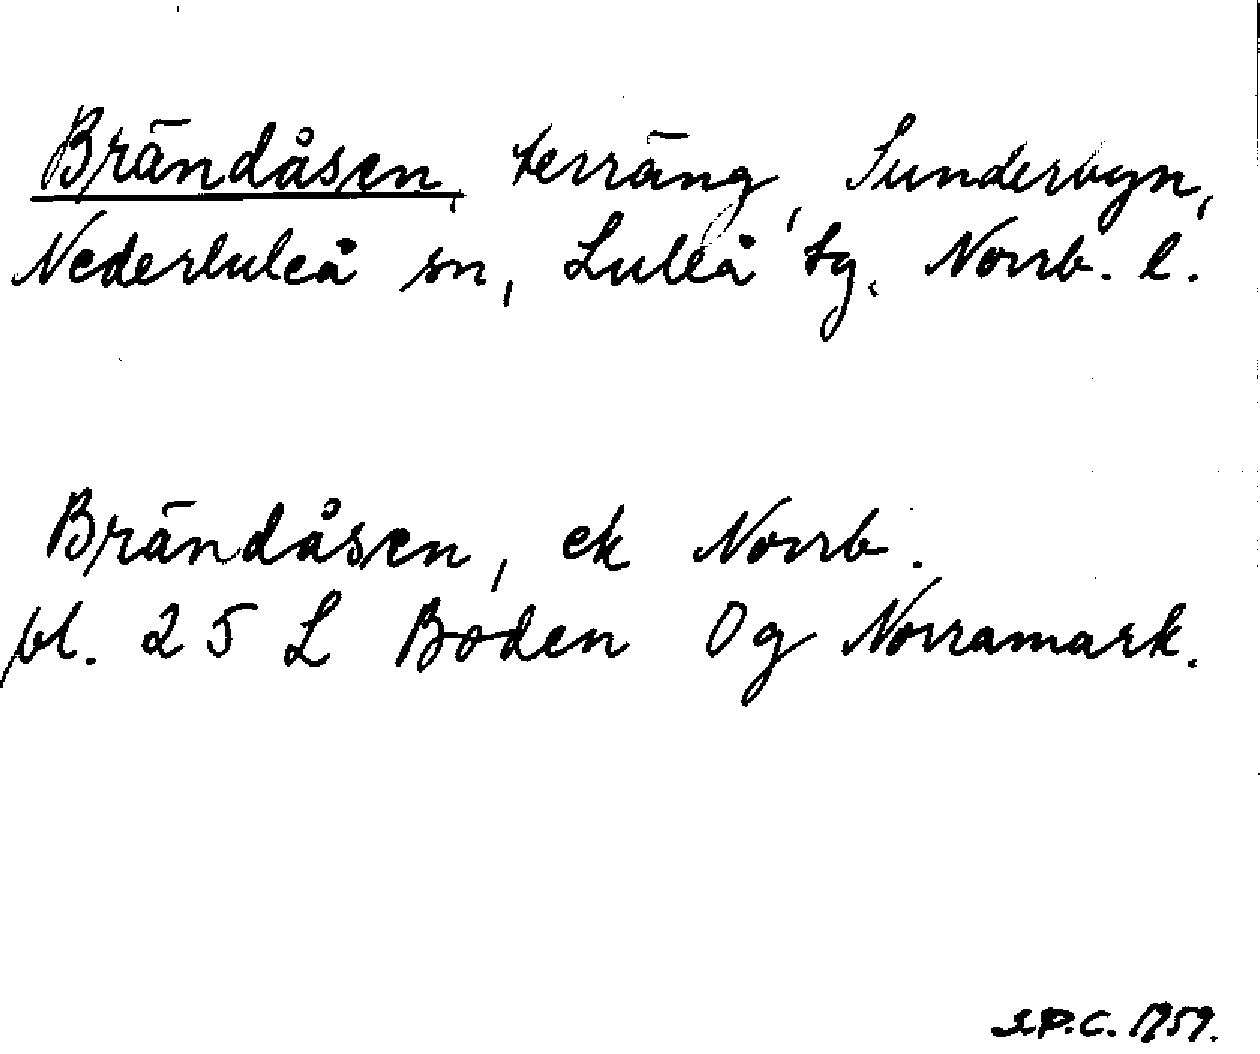 Brändåsen, terräng, Sunderbyn,
Nederluleå sn, Luleå tg. Norrb. l.
Brändåsen, ek Norrb.
bl. 25 L Boden Og Norramark.
S.P.C. 1959.